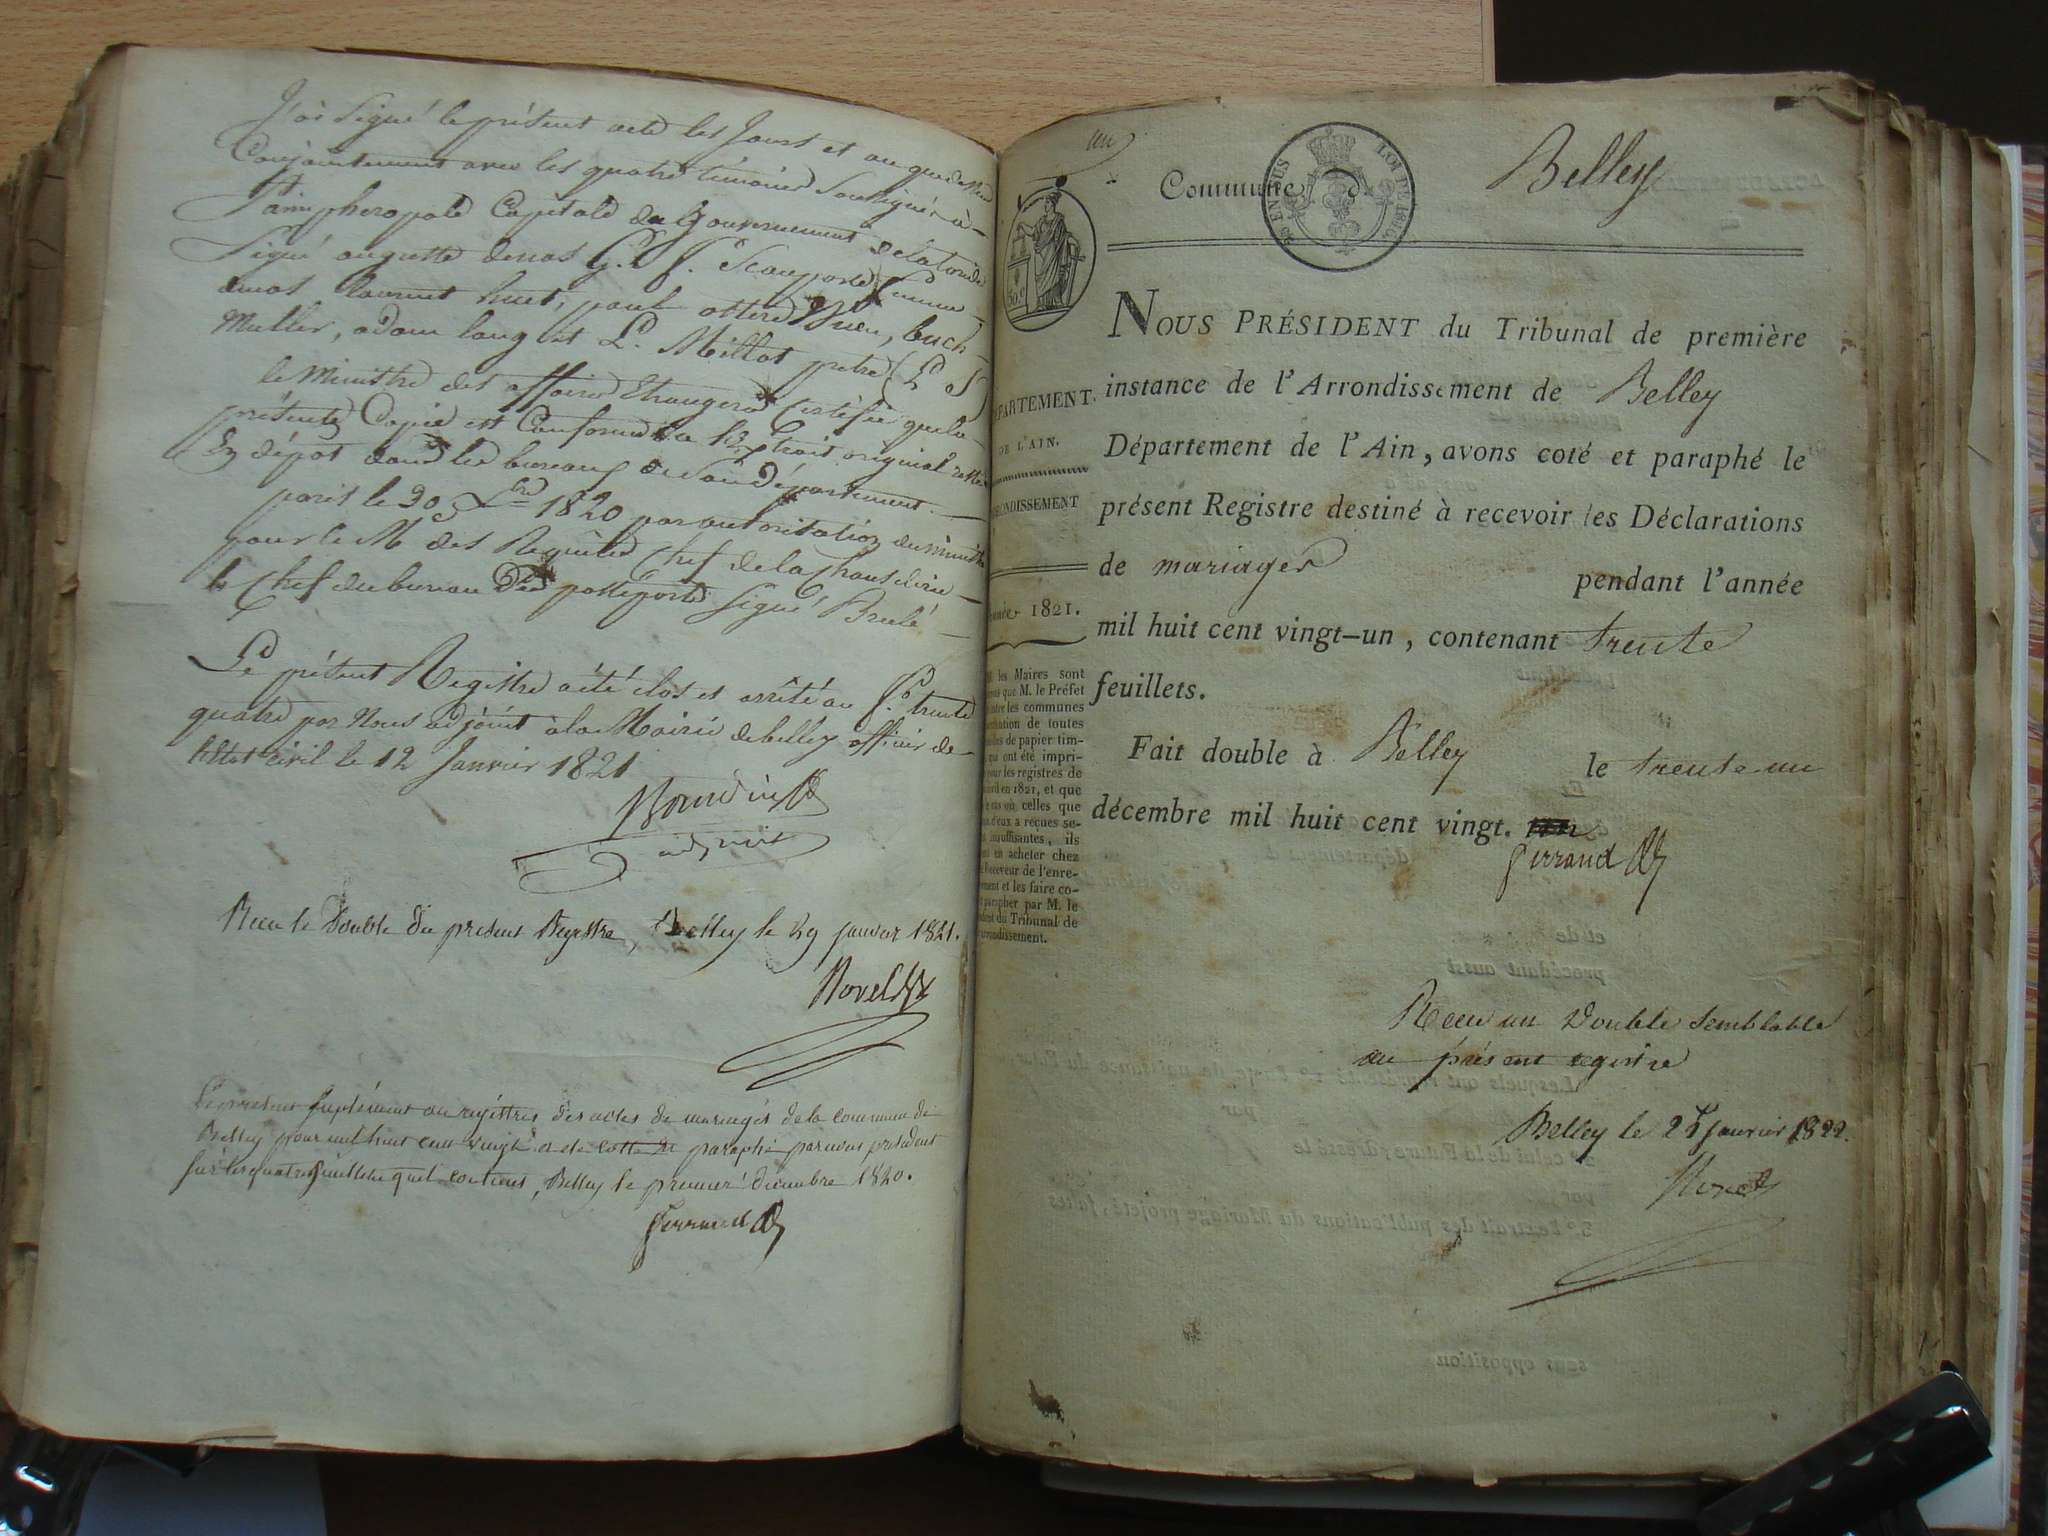 J'ai signé le présent acte les Jours et an que dessus
Conjointement avec les quatre témoins Soussignés à
Simpheropole Capitale du Gouvernement de la tauride
Signé auguste demas G. f.
amas Laurent huet, paul
Muller, adam lang et L. Millot prêtre (L S)
le Ministre des affaires Etrangeres Certifie que la
présente Copie est Conforme a l'Extrait original resté
En dépot dans les bureaux de Son département.
paris le 30 Xbre 1820 par autorisation du ministre
pour le M des Requetes Chef de la Chancelerie
le Chef du bureau Des passeports Signé Brulé
Le présent Registre a été clos et arrêté au fo. trente
quatre par Nous adjoint à la Mairie de belley officier de
l'Etat civil le 12 Janvier 1821
adjoint
Recu le Double du present Registre, Belley le 29 janvier 1821.
Le présent suplément au régistres des actes de mariages de la commune de
Belley pour mil huit cent vingt a été cotté et paraphé par nous président
sur les quatre feuillets qu'il contient, Belley le premier décembre 1820.
Perraud
un
Commune d Belley
BIENS SUS LOI DE 1816
50.c
NOUS PRÉSIDENT du Tribunal de première
instance de l'Arrondissement de Belley
Département de l'Ain, avons coté et paraphé le
présent Registre destiné à recevoir les Déclarations
de mariages pendant l'année
mil huit cent vingt-un, contenant trente
feuillets.
Fait double à Belley le trente un
décembre mil huit cent vingt.
Perraud
PARTEMENT
DE L'AIN.
RONDISSEMENT
année 1821.
les Maires sont
que M. le Préfet
les communes
de toutes
de papier tim-
qui ont été impri-
pour les registres de
en 1821, et que
cas où celles que
d'eux a reçues se-
insuffisantes, ils
en acheter chez
Receveur de l'enre-
ment et les faire co-
parapher par M. le
du Tribunal de
rondissement.
Recu un Double semblable
au présent registre
Belley le 25 janvier 1822.